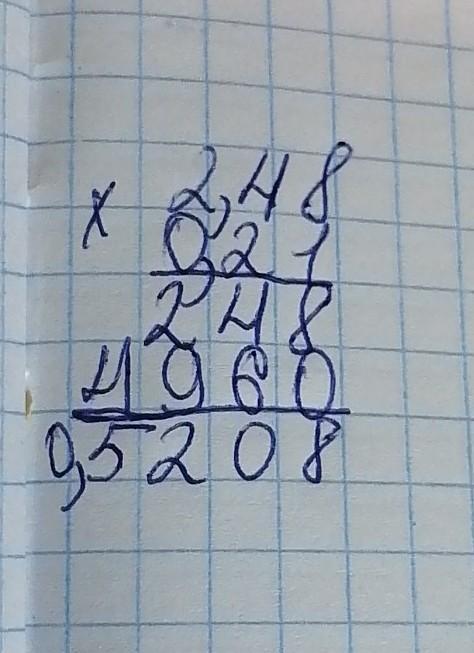 × 2,48
0,21
248
4960
0,5208